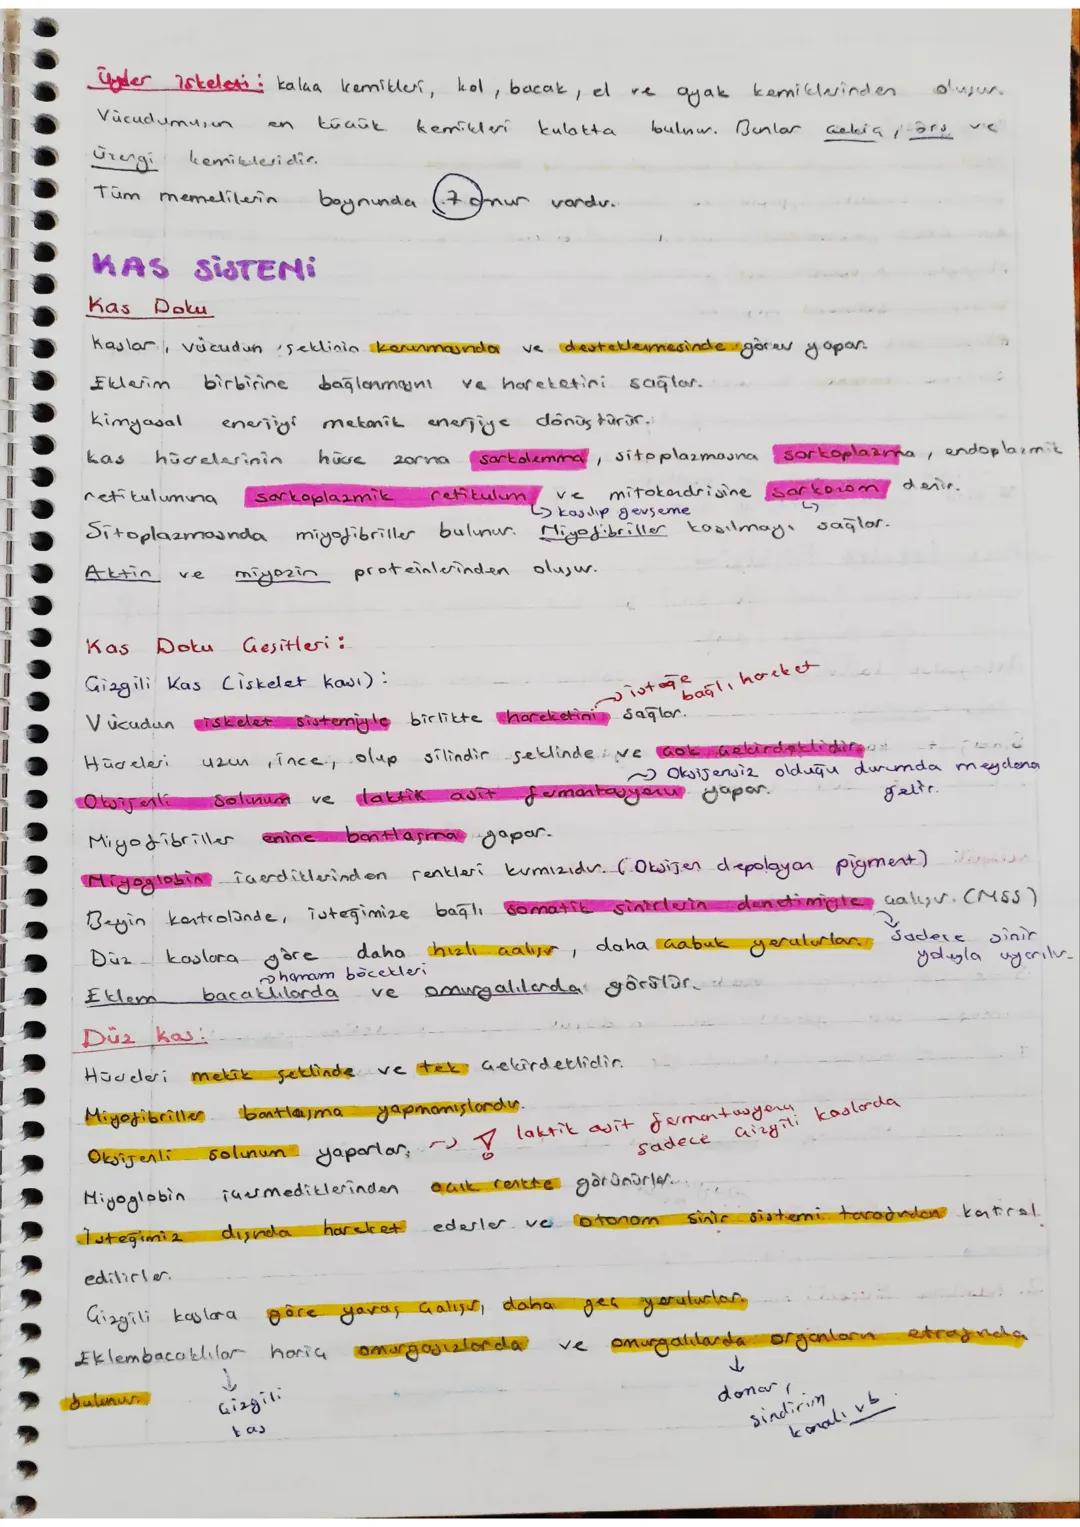 Üyeler iskeleti: kalça kemikleri, kol, bacak, el ve ayak kemiklerinden oluşur.
Vücudumuzun en küçük kemikleri kulakta bulunur. Bunlar çekiç, örs ve
üzengi kemikleridir.
Tüm memelilerin boynunda 7 omur vardır.
KAS SİSTEMİ
Kas Doku
Kaslar, vücudun şeklinin korunmasında ve desteklenmesinde görev yapar.
Eklerim birbirine bağlanmasını ve hareketini sağlar.
Kimyasal enerjiyi mekanik enerjiye dönüştürür.
Kas hücrelerinin hücre zarına sarkolemma, sitoplazmasına sarkoplazma, endoplazmik
retikulumuna sarkoplazmik retikulum ve mitokondrisine sarkozom denir.
↳ kasılıp gevşeme
Sitoplazmasında miyofibriller bulunur. Miyofibriller kasılmayı sağlar.
Aktin ve miyozin proteinlerinden oluşur.
Kas Doku Çeşitleri:
Çizgili Kas (iskelet kası):
→ isteğe bağlı hareket
Vücudun iskelet sistemiyle birlikte hareketini sağlar.
Hücreleri uzun, ince, olup silindir şeklinde ve çok çekirdeklidir.
→ Oksijensiz olduğu durumda meydana gelir.
Oksijenli solunum ve laktik asit fermantasyonu yapar.
Miyofibriller enine bantlaşma yapar.
Miyoglobin içerdiklerinden renkleri kırmızıdır. (Oksijen depolayan pigment)
Beyin kontrolünde, isteğimize bağlı somatik sinirlerin denetimiyle çalışır. (MSS)
Sadece sinir yoluyla uyarılır.
Düz kaslara göre daha hızlı çalışır, daha çabuk yorulurlar.
→ hamam böcekleri
Eklem bacaklılarda ve omurgalılarda görülür.
Düz kas:
Hücreleri mekik şeklinde ve tek çekirdeklidir.
Miyofibriller bantlaşma yapmamışlardır.
Oksijenli solunum yaparlar, → ! laktik asit fermantasyonu sadece çizgili kaslarda
Miyoglobin içermediklerinden açık renkte görünürler.
İsteğimiz dışında hareket ederler ve otonom sinir sistemi tarafından kontrol
edilirler.
Çizgili kaslara göre yavaş çalışır, daha geç yorulurlar.
Eklembacaklılar hariç omurgasızlarda ve omurgalılarda organların etrafında
bulunur.
↓ Çizgili kas
↓ damar, sindirim kanalı vb